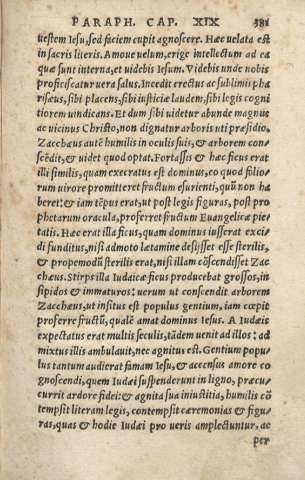 PARAPH. CAP. XIX 381
uestem Iesu, sed faciem cupit agnoscere. Hæc uelata est
in sacris literis. Amoue uelum, erige intellectum ad ea
quæ sunt interna, et uidebis Iesum. Videbis unde nobis
proficiscatur uera salus. Incedit erectus ac sublimis pha
risæus, sibi placens, sibi iusticiæ laudem, sibi legis cogni
tiorem uindicans. Et dum sibi uidetur abunde magnus
ac uicinus Christo, non dignatur arboris uti præsidio.
Zacchæus autē humilis in oculis suis, & arborem con-
scēdit, & uidet quod optat. Fortassis & hæc ficus erat
illi similis, quam execratus est dominus, eo quod folio-
rum uirore promitteret fructum esurienti, quũ non ha
beret: & iam tēpus erat, ut post legis figuras, post pro
phetarum oracula, proferret fructum Euangelicæ pie-
tatis. Hæc erat illa ficus, quam dominus iusserat exci-
di funditus, nisi admoto lætamine desijsset esse sterilis,
& propemodũ sterilis erat, nisi illam cōscendisset Zac-
chæus. Stirps illa Iudaicæ ficus producebat grossos, in-
sipidos & immaturos: uerum ut conscendit arborem
Zacchæus, ut insitus est populus gentium, iam cœpit
proferre fructũ, qualē amat dominus Iesus. A Iudæis
expectatus erat multis seculis, tādem uenit ad illos: ad
mixtus illis ambulauit, nec agnitus est. Gentium popu-
lus tantum audierat famam Iesu, & accensus amore co
gnoscendi, quem Iudæi suspenderunt in ligno, præcu-
currit ardore fidei: & agnita sua iniustitia, humilis cō
tempsit literam legis, contempsit cæremonias & figu-
ras, quas & hodie Iudæi pro ueris amplectuntur, ac
per